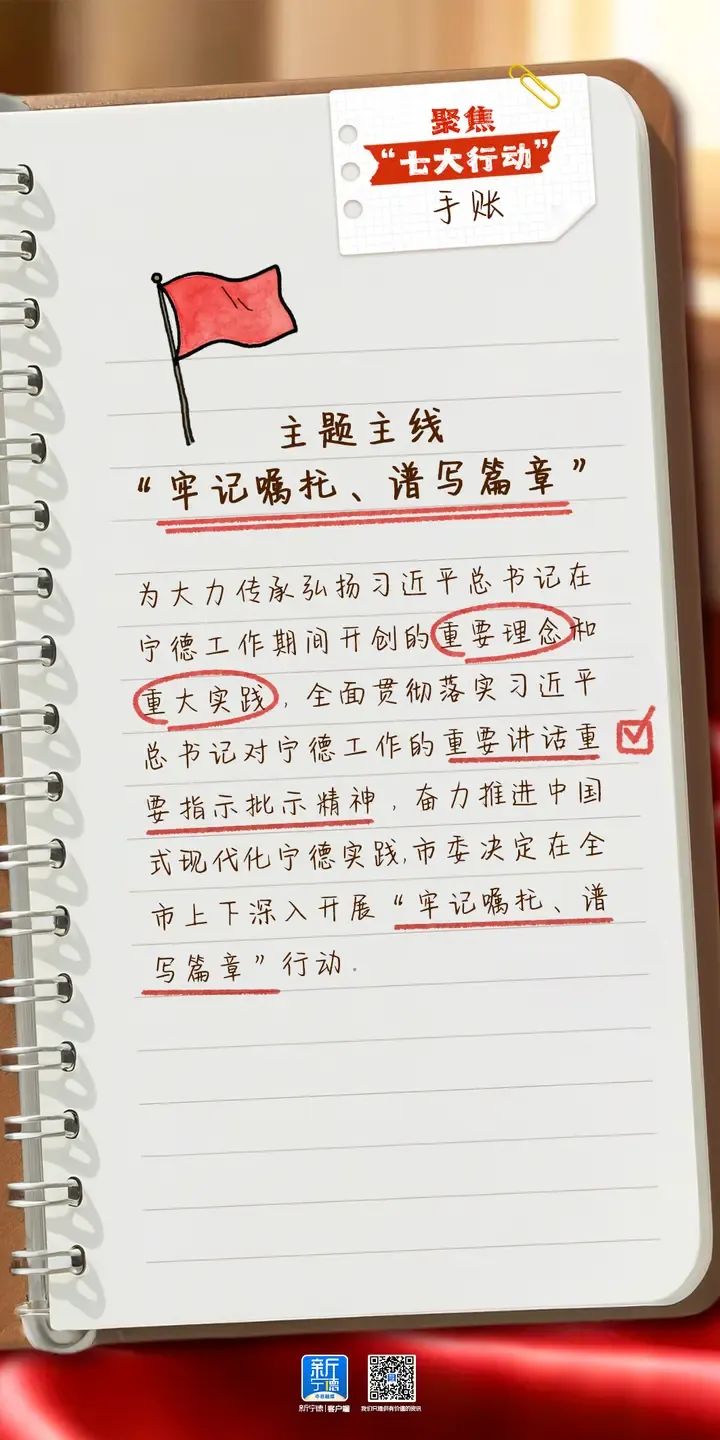 聚焦
“七大行动”
手账
主题主线
“牢记嘱托、谱写篇章”
为大力传承弘扬习近平总书记在
宁德工作期间开创的重要理念和
重大实践，全面贯彻落实习近平
总书记对宁德工作的重要讲话重
要指示批示精神，奋力推进中国
式现代化宁德实践，市委决定在全
市上下深入开展“牢记嘱托、谱
写篇章”行动.
新
宁德
新宁德|客户端
我们只提供有价值的资讯